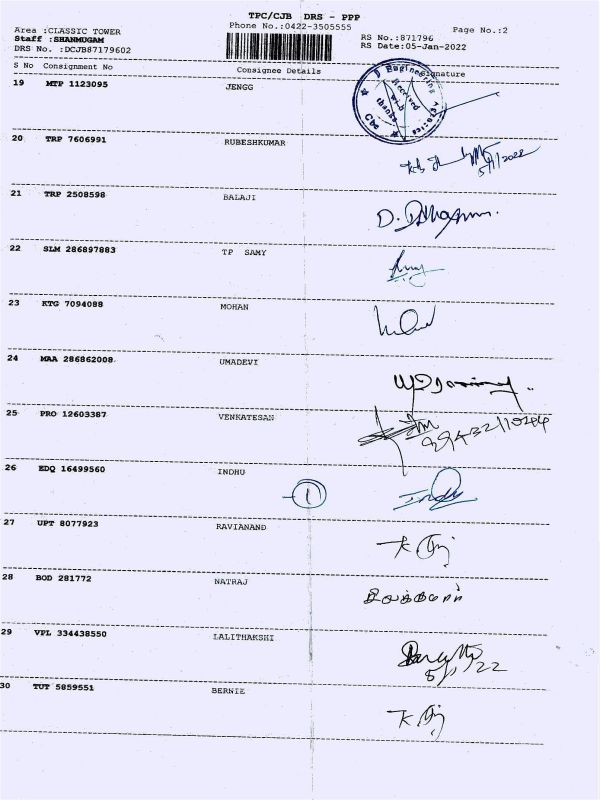 TPC/CJB DRS - PPP
Area :CLASSIC TOWER Phone No.:0422-3505555 Page No.:2
Staff :SHANMUGAM RS No.:871796
DRS No. :DCJB87179602 RS Date:05-Jan-2022
S No Consignment No Consignee Details Signature
19 MTP 1123095 JENGG
Engineering
Received
with
thanks
Cbe
20 TRP 7606991 RUBESHKUMAR
5/1/2022
21 TRP 2508598 BALAJI
D.
22 SLM 286897883 TP SAMY
23 KTG 7094088 MOHAN
24 MAA 286862008 UMADEVI
25 PRO 12603387 VENKATESAN
26 EDQ 16499560 INDHU
1
Indhu
27 UPT 8077923 RAVIANAND
28 BOD 281772 NATRAJ
29 VPL 334438550 LALITHAKSHI
5/1/22
30 TUT 5859551 BERNIE